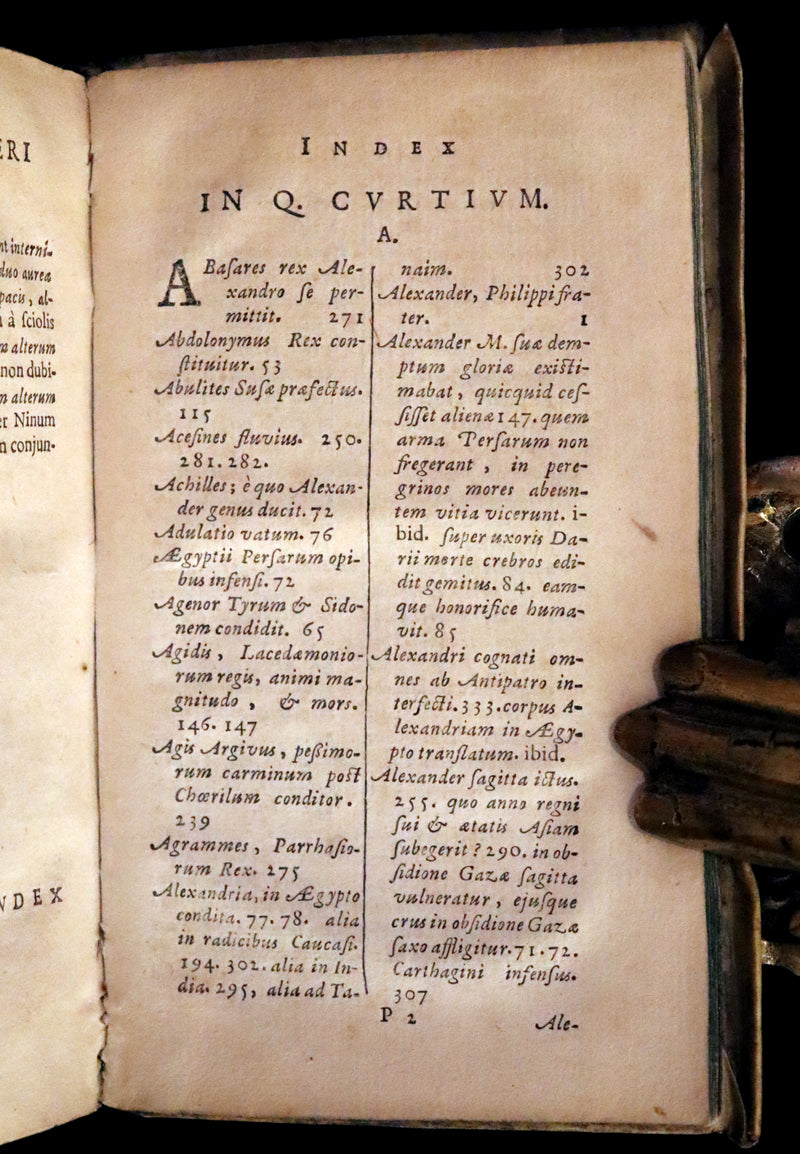 ERI
nt interni-
duo aurea
pacis, al-
à ſciolis
m alterum
non dubi-
m alterum
er Ninum
n conjun-
NDEX
INDEX
IN Q. CVRTIVM.
A.
ABaſares rex Ale-
xandro ſe per-
mittit. 271
Abdolonymus Rex con-
ſtituitur. 53
Abulites Suſæ præfectus.
115
Aceſines fluvius. 250.
281. 282.
Achilles; è quo Alexan-
der genus ducit. 72
Adulatio vatum. 76
Ægyptii Perſarum opi-
bus infenſi. 72
Agenor Tyrum & Sido-
nem condidit. 65
Agidis, Lacedæmonio-
rum regis, animi ma-
gnitudo, & mors.
146. 147
Agis Argivus, peſſimo-
rum carminum poſt
Chœrilum conditor.
239
Agrammes, Parrhaſio-
rum Rex. 275
Alexandria, in Ægypto
condita. 77. 78. alia
in radicibus Caucaſi.
194. 302. alia in In-
dia. 295, alia ad Ta-
naim. 302
Alexander, Philippi fra-
ter. 1
Alexander M. ſuæ dem-
ptum gloriæ exiſti-
mabat, quicquid ceſ-
ſiſſet alienæ 147. quem
arma Perſarum non
fregerant, in pere-
grinos mores abeun-
tem vitia vicerunt. i-
bid. ſuper uxoris Da-
rii morte crebros edi-
dit gemitus. 84. eam-
que honorifice huma-
vit. 85
Alexandri cognati om-
nes ab Antipatro in-
terfecti. 333. corpus A-
lexandriam in Ægy-
pto tranſlatum. ibid.
Alexander ſagitta ictus.
255. quo anno regni
ſui & ætatis Aſiam
ſubegerit? 290. in ob-
ſidione Gazæ ſagitta
vulneratur, ejuſque
crus in obſidione Gazæ
ſaxo affligitur. 71. 72.
Carthagini infenſus.
307
P 2
Ale-